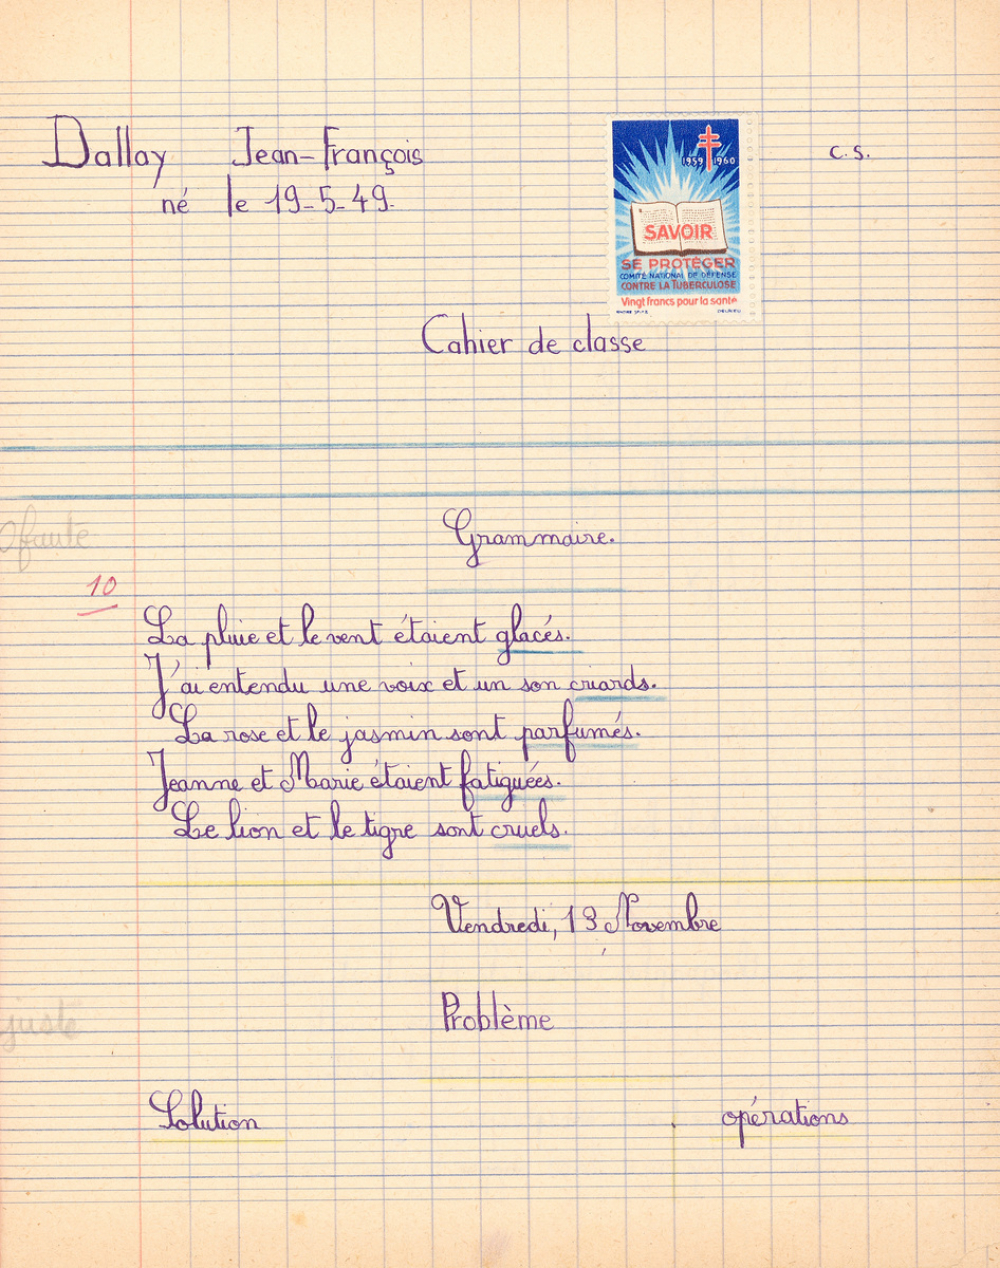 Dallay Jean-François
C.S.
né le 19-5-49.
1959 1960
SAVOIR
SE PROTÉGER
COMITÉ NATIONAL DE DÉFENSE
CONTRE LA TUBERCULOSE
Vingt francs pour la santé
Cahier de classe
0 faute
Grammaire.
10
La pluie et le vent étaient glacés.
J'ai entendu une voix et un son criards.
La rose et le jasmin sont parfumés.
Jeanne et Marie étaient fatiguées.
Le lion et le tigre sont cruels.
Vendredi, 13 Novembre
Problème
juste
Solution opérations